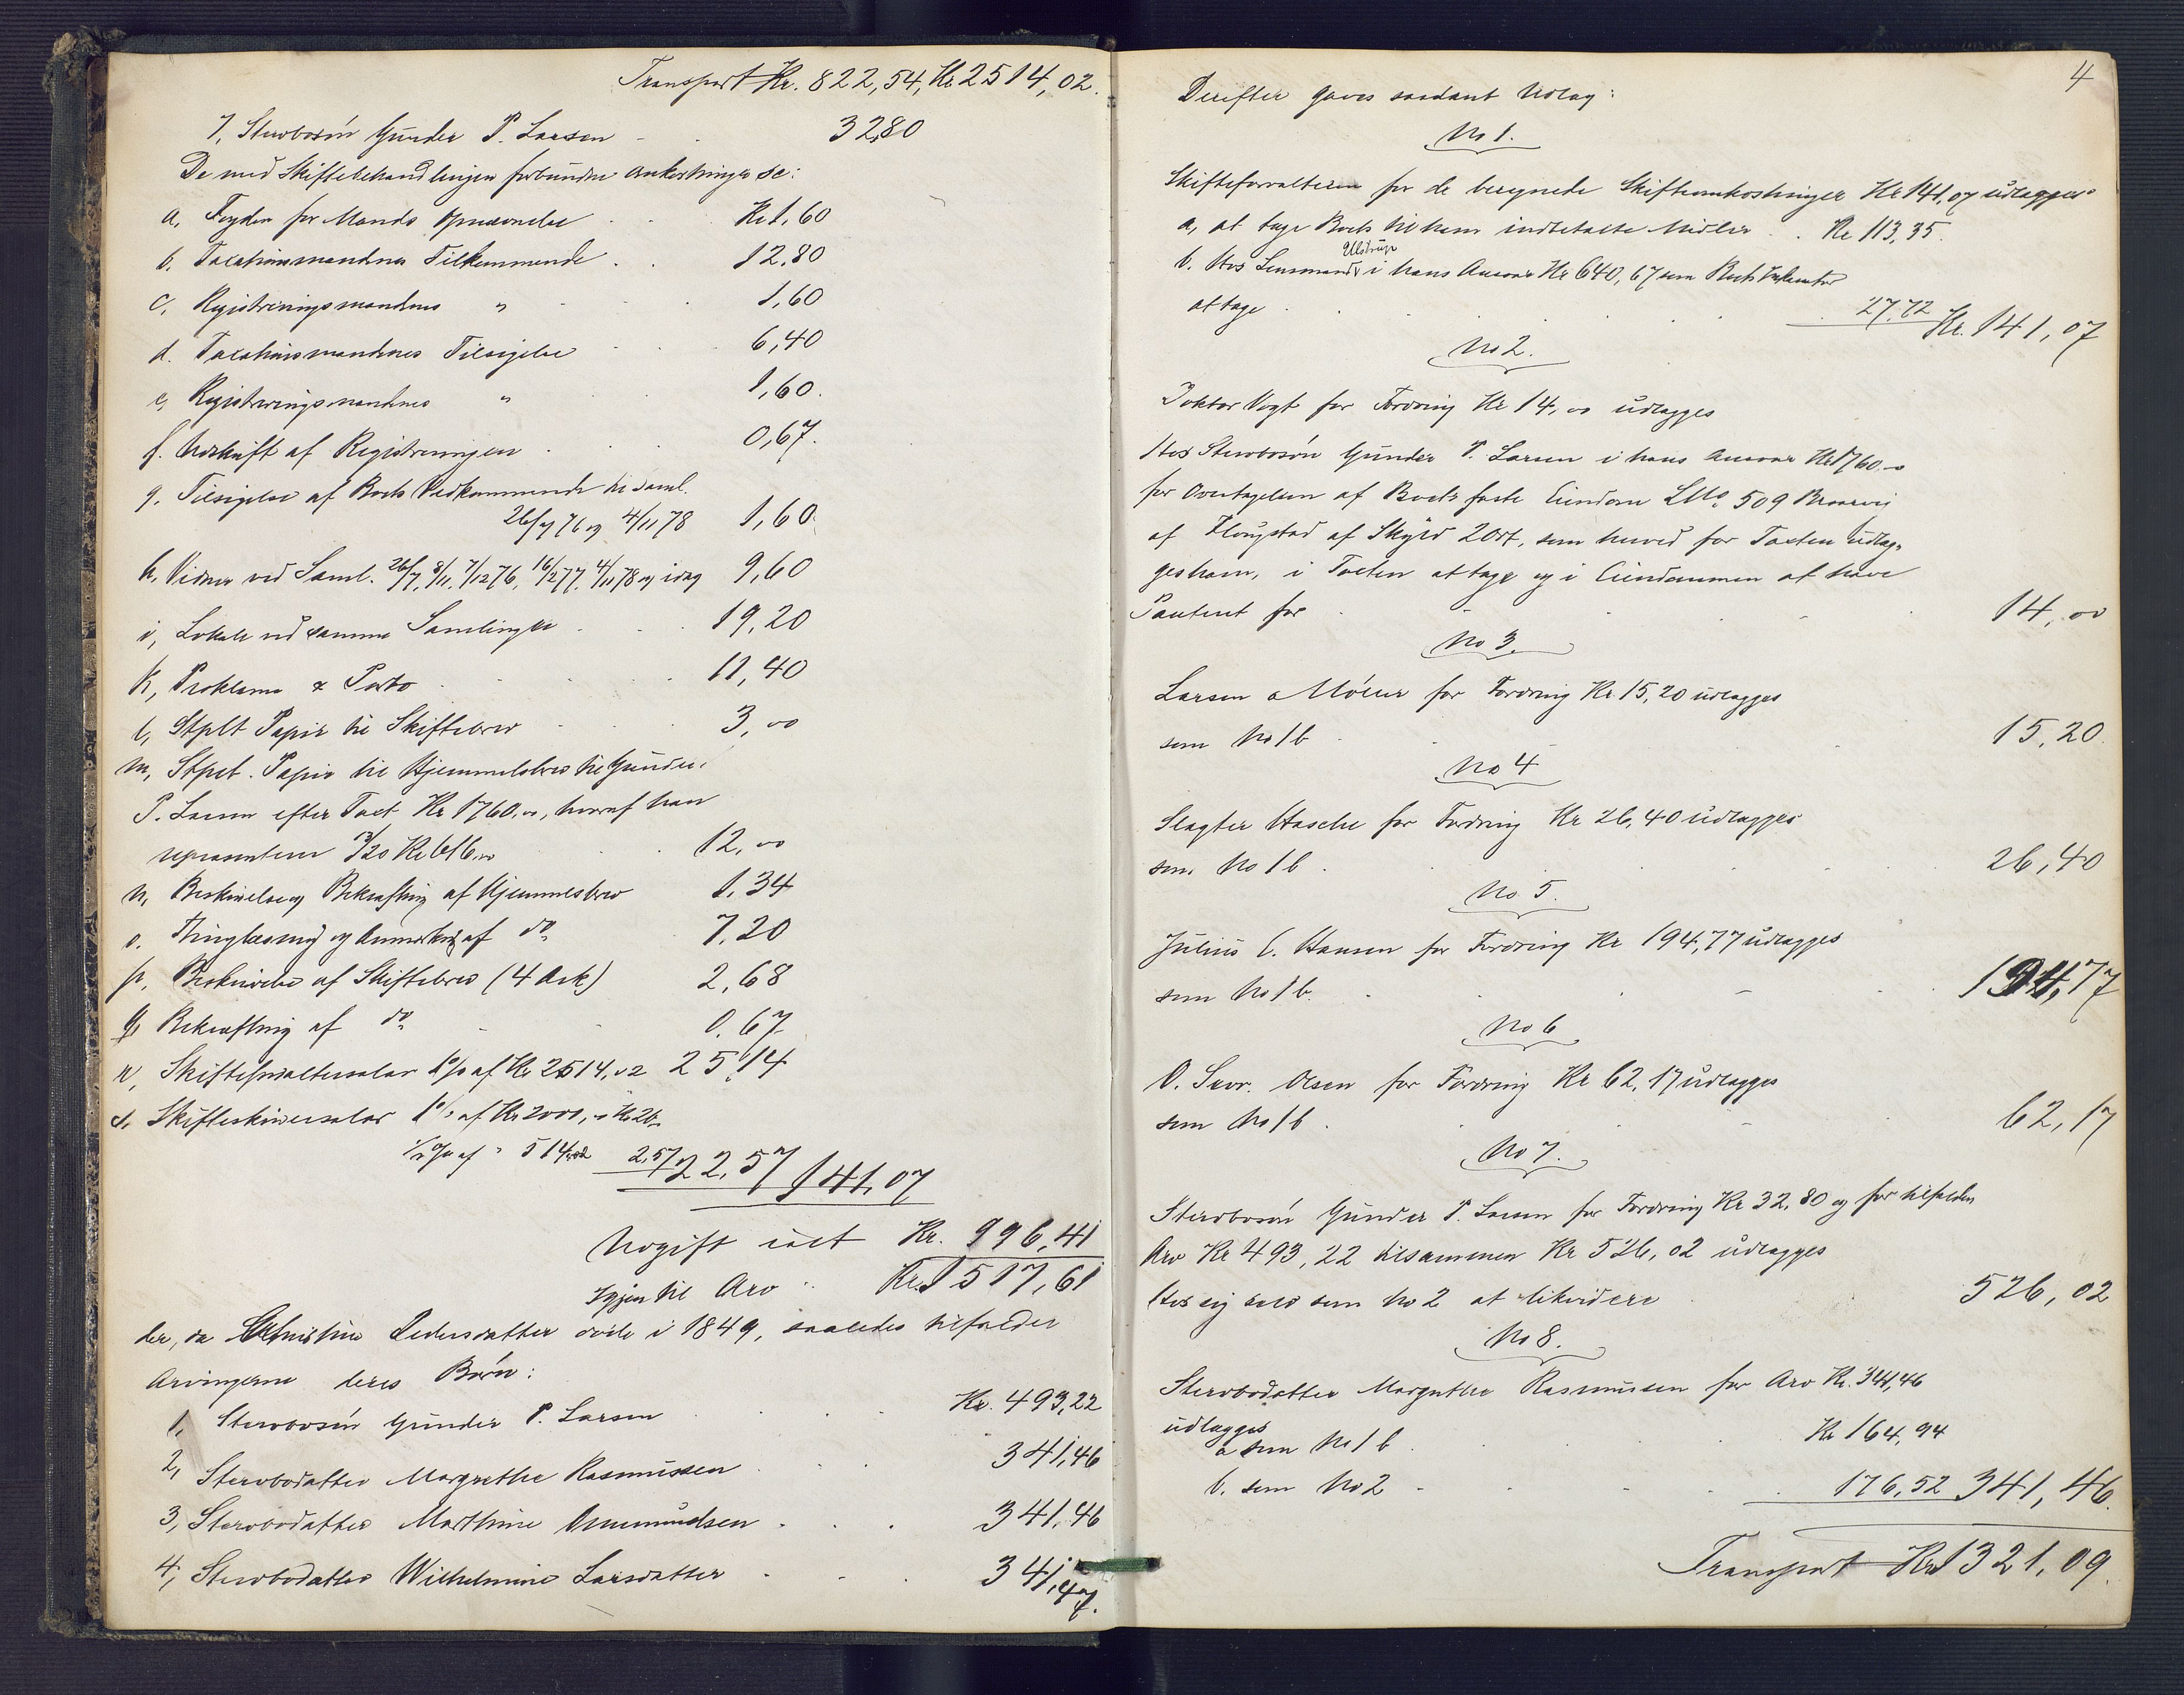 Transport Kr. 822,54, Kr 2514,02.
7, Stervbosøn Gunder P. Larsen 32,80
De med Skiftebehandlingen forbundne Omkostninger sc:
a, Fogden for Mænds Opnævnelse Kr 1,60
b, Taxationsmændenes Tilkommende 12,80
c, Registreringsmændenes " 1,60
d. Taxationsmændenes Tilsigelse 6,40
e, Registreringsmændenes " 1,60.
f. Udskrift af Registreringen 0,67.
g, Tilsigelse af Boets Vedkommende til Saml.
26/7 76 og 4/11 78 1,60.
h, Vidner ved Saml. 26/7, 8/11, 7/12 76, 16/2 77, 4/11 78 og idag 9,60
i, Lokale ved samme Samlinger 19,20
k, Proklama & Porto 11,40
l, Stplt Papir til Skiftebrev 3,00
m, Stplt. Papir til Hjemmelsbrev til Gunder
P. Larsen efter Taxt Kr 1760,00, hvoraf han
repræsenterer 7/20 Kr 616,00 12,00
n, Beskrivelse og Bekræftning af Hjemmelsbrev 1,34
o. Thinglæsning og Anmærkning af do 7,20
p, Beskrivelse af Skiftebrev (4 Ark) 2,68
q, Bekræftning af do 0,67
r, Skifteforvaltersalær 1% af Kr 2514,02 25,14
s, Skifteskriversalær 1% af Kr 2000, Kr 20,
½ % af " 514,02 2,57 22,57 141,07
Udgift ialt Kr. 996,41
Igjen til Arv Kr. 1517,61
der, da Christine Pedersdatter døde i 1849, saaledes tilfalder
Arvingerne deres Børn:
1, Stervbosøn Gunder P. Larsen Kr. 493,22
2, Stervbodatter Margrethe Rasmussen 341,46
3, Stervbodatter Marthine Aanundsen 341,46
4, Stervbodatter Wilhelmine Larsdatter 341,47.
4
Derefter gaves saadant Udlæg:
No 1.
Skifteforvalteren for de beregnede Skifteomkostninger Kr 141,07 udlægges
a, at tage Boets til ham indbetalte Midler Kr 113,35.
b. Hos Lensmand Ellstrup i hans Ansvar Kr 640,67 som Boets Inkassator
at tage 27,72 Kr. 141,07
No 2.
Doktor Vogt for Fordring Kr 14,00 udlægges
Hos Stervbosøn Gunder P. Larsen i hans Ansvar Kr 1760.00
for Overtagelsen af Boets faste Eiendom LNo 509
af Skyld 20 rt, som herved for Taxten udlæg-
ges ham, i Taxten at tage og i Eiendommen at have
Panteret for 14,00
No 3.
Larsen & Møller for Fordring Kr 15,20 udlægges
som No 1 b 15,20
No 4
Slagter Hasche for Fordring Kr 26,40 udlægges
som No 1 b 26,40
No 5.
Julius C. Hansen for Fordring Kr 194,77 udlægges
som No 1 b. 194,77
No 6
O. Olsen for Fordring Kr 62,17 udlægges
som No 1 b 62,17
No 7.
Stervbosøn Gunder P. Larsen for Fordring Kr 32,80 og for tilfalden
Arv Kr 493,22 tilsammen Kr 526,02 udlægges
Hos sig selv som No 2 at likvidere 526,02
No 8.
Stervbodatter Margrethe Rasmussen for Arv Kr. 341,46
udlægges
a som No 1 b Kr 164,94
b. som No 2 176,52 341,46.
Transport Kr 1321,09.